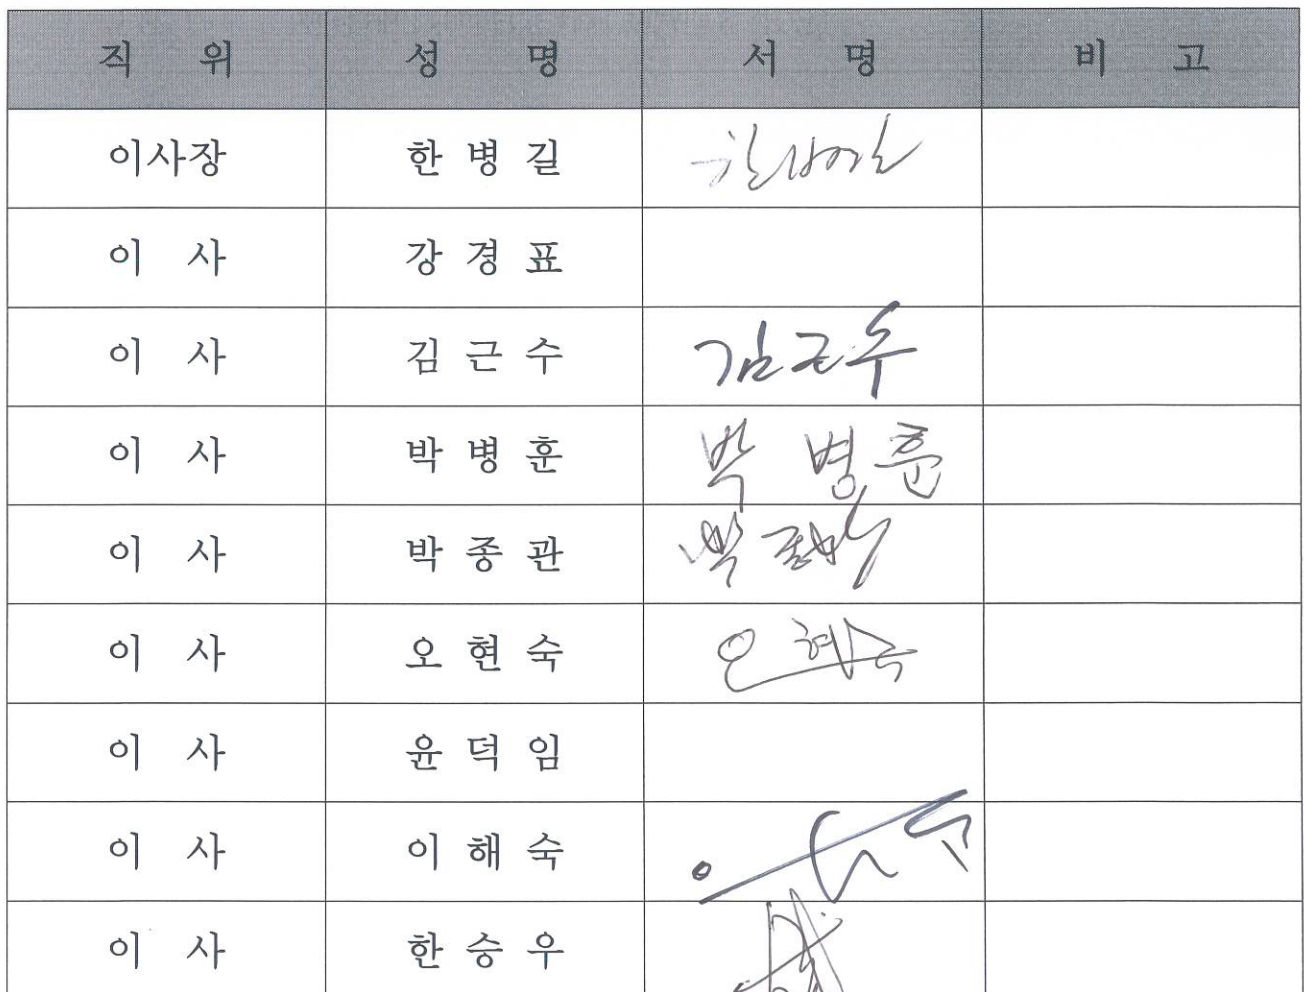 직 위 성 명 서 명 비 고
이사장 한 병 길
이 사 강 경 표
이 사 김 근 수 김근수
이 사 박 병 훈 박 병훈
이 사 박 종 관
이 사 오 현 숙 오 현숙
이 사 윤 덕 임
이 사 이 해 숙
이 사 한 승 우